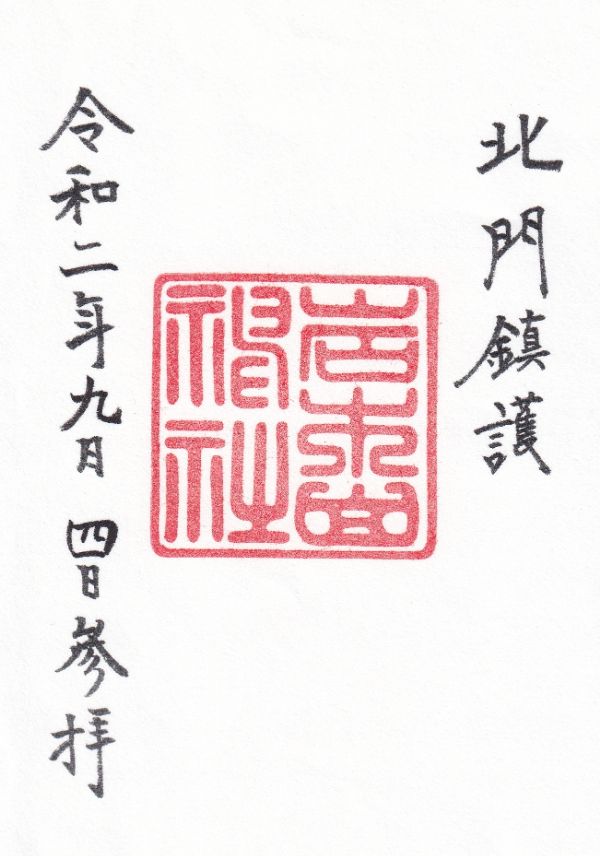 北門鎮護
岩木山
神社
令和二年九月四日参拝